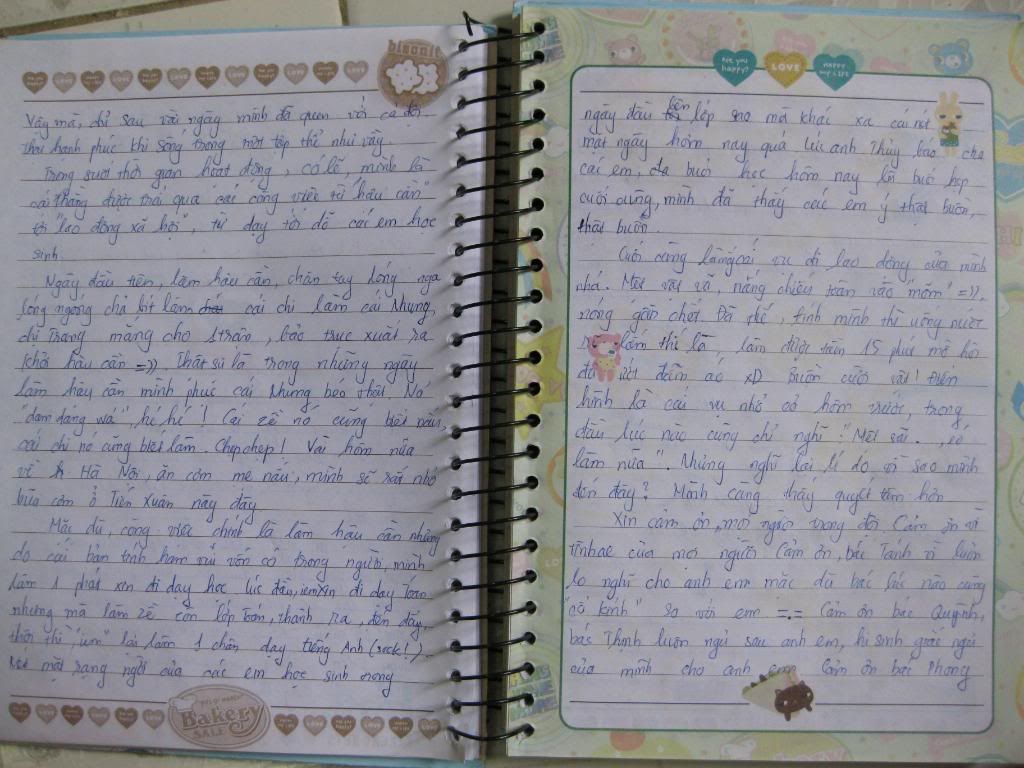 biscuit
Are you happy?
LOVE
Vậy mà, chỉ sau vài ngày mình đã quen với cả đội
hạnh phúc khi sống trong một tập thể như vầy.
Trong suốt thời gian hoạt động, có lẽ, mình là
cái thằng được trải qua các công việc từ "hậu cần"
tới "lao động xã hội", từ dạy tới dỗ các em học
sinh.
Ngày đầu tiên, làm hậu cần, chân tay lóng nga
lóng ngóng chả biết làm cái chi làm cái Nhung,
chị Trang mắng cho 1 trận, bảo trục xuất ra
khỏi hậu cần =)). Thật sự là trong những ngày
làm hậu cần mình phục cái Nhung béo thật. Nó
"đảm đang wá", hé hé! Cái gề nó cũng biết nấu,
cái chi nó cũng biết làm. Chẹp chẹp! Vài hôm nữa
về Hà Nội, ăn cơm mẹ nấu, mình sẽ rất nhớ
bữa cơm ở Tiến Xuân này đây
Mặc dù, công việc chính là làm hậu cần nhưng
do cái bản tính ham vui vốn có trong người, mình
làm 1 phát xin đi dạy học. Lúc đầu, xin đi dạy Toán
nhưng mà làm gề còn lớp Toán, thành ra, đến đây,
thời thì "ụm" lại làm 1 chân dạy tiếng Anh (sock!).
mặt rạng ngời của các em học sinh trong
Bakery
SALE
Are you happy?
LOVE
Happy my life
ngày đầu lên lớp sao mà khác xa cái nét
mặt ngày hôm nay quá. Lúc anh Thủy bảo cho
các em, buổi học hôm nay là buổi học
cuối cùng, mình đã thấy các em ý thật buồn,
thật buồn.
Cuối cùng là cái vụ đi lao động của mình
nhá. Mệt vật vã, nắng chiếu toàn vào "mồm" =)),
nóng gần chết. Đã thế, tính mình thì uống nước
lắm thế là, làm được tầm 15 phút mồ hôi
đã ướt đẫm áo xD Buồn cười vãi! Điển
hình là cái vụ nhổ cỏ hôm trước, trong
đầu lúc nào cũng chỉ nghĩ: "Mệt vãi.
làm nữa". Nhưng nghĩ lại lí do vì sao mình
đến đây? Mình càng thấy quyết tâm hơn
Xin cảm ơn, mọi người trong đội. Cảm ơn vì
của mọi người. Cảm ơn, bác Tánh vì luôn
lo nghĩ cho anh em mặc dù bác lúc nào cũng
"cố kính" so với em =.= Cảm ơn bác Quỳnh,
bác Thịnh luôn ngủ sau anh em, hi sinh giấc ngủ
của mình cho anh em. Cảm ơn bác Phong